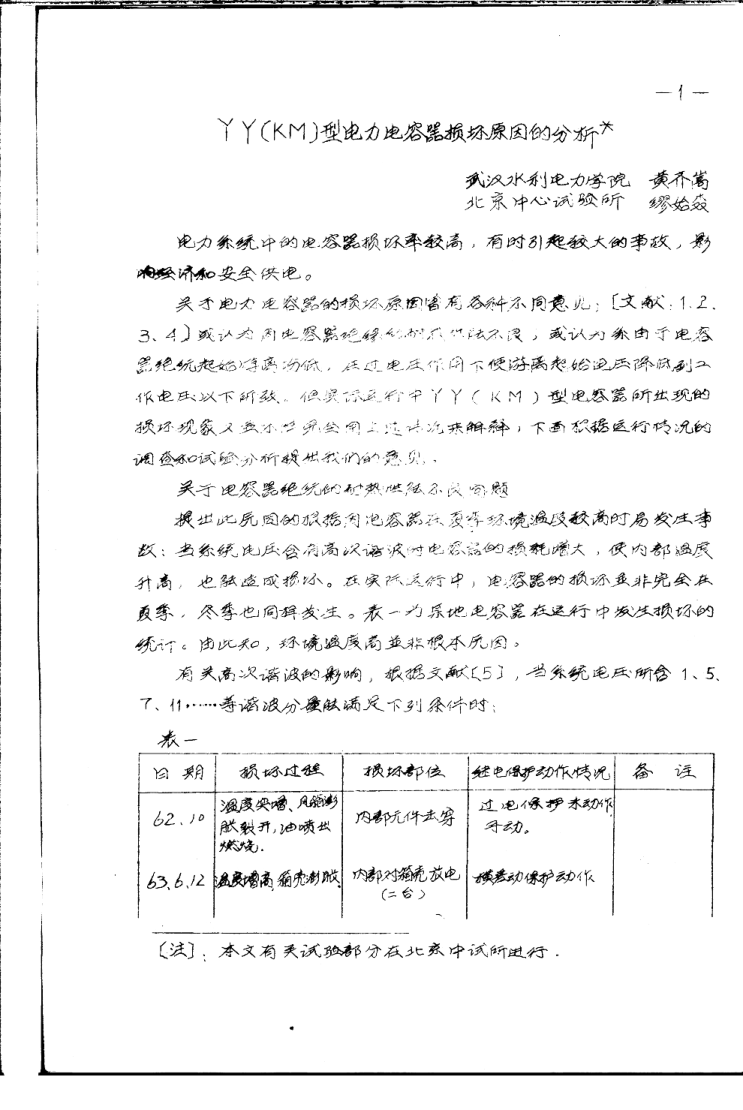 —1—
YY(KM)型电力电容器损坏原因的分析*
武汉水利电力学院 黄齐嵩
北京中心试验所 缪始森
电力系统中的电容器损坏率较高，有时引起较大的事故，影
响经济和安全供电。
关于电力电容器的损坏原因曾有各种不同意见；〔文献：1.2.
3、4〕或认为因电容器绝缘的耐热性能不良，或认为系由于电容
器绝缘起始游离场低，在过电压作用下使游离起始电压降低到工
作电压以下所致。但实际运行中YY(KM)型电容器所出现的
损坏现象又并不能完全用上述情况来解释，下面根据运行情况的
调查和试验分析提出我们的意见．
关于电容器绝缘的耐热性能不良问题
提出此原因的根据为电容器在夏季环境温度较高时易发生事
故；当系统电压含有高次谐波时电容器的损耗增大，使内部温度
升高，也能造成损坏。在实际运行中，电容器的损坏并非完全在
夏季，冬季也同样发生。表一为某地电容器在运行中发生损坏的
统计。由此知，环境温度高並非根本原因。
有关高次谐波的影响，根据文献〔5〕，当系统电压所含1、5、
7、11……等谐波分量能满足下列条件时；
表一
日期 损坏过程 损坏部位 继电保护动作情况 备注
62.10 温度突增、凡箱澎胀裂开，油喷出燃烧． 内部元件击穿 过电保护未动作手动。
63.6.12 温度增高，箱壳澎胀 内部对箱壳放电（二台） 横差动保护动作
〔注〕；本文有关试验部分在北京中试所进行．